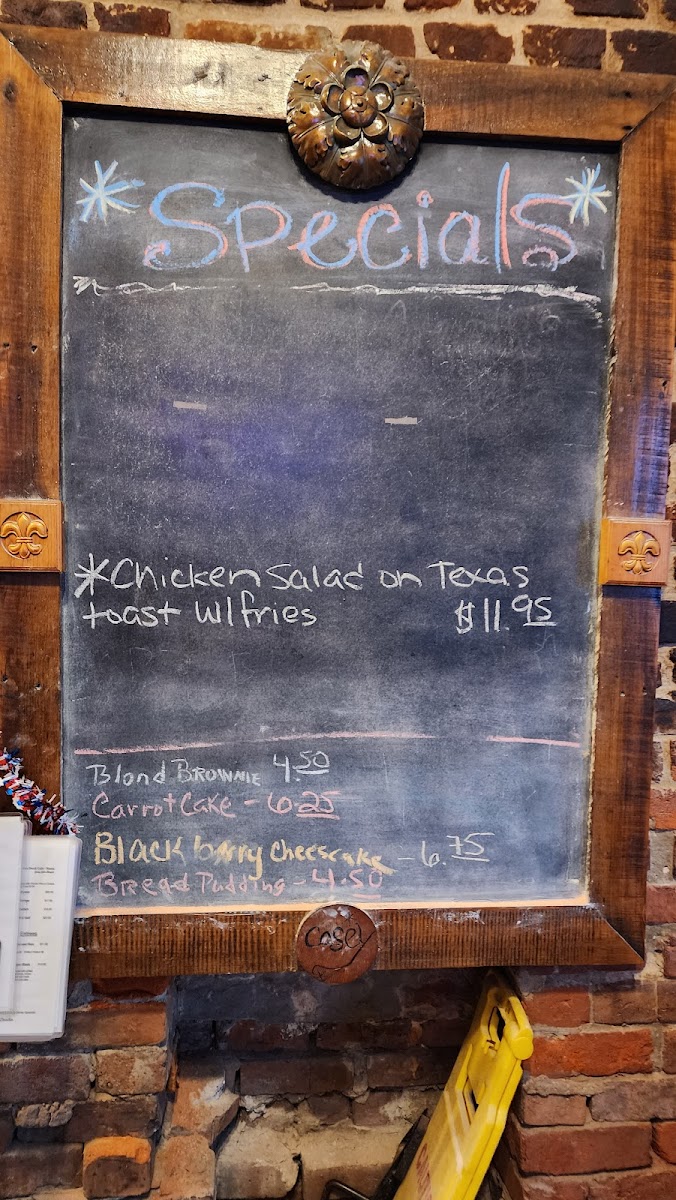 *Specials*
*Chicken Salad on Texas
toast w/fries $11.95
Blond BROWNIE 4.50
Carrot Cake - 6.25
Blackberry Cheescake - 6.75
Bread Pudding - 4.50
Casey